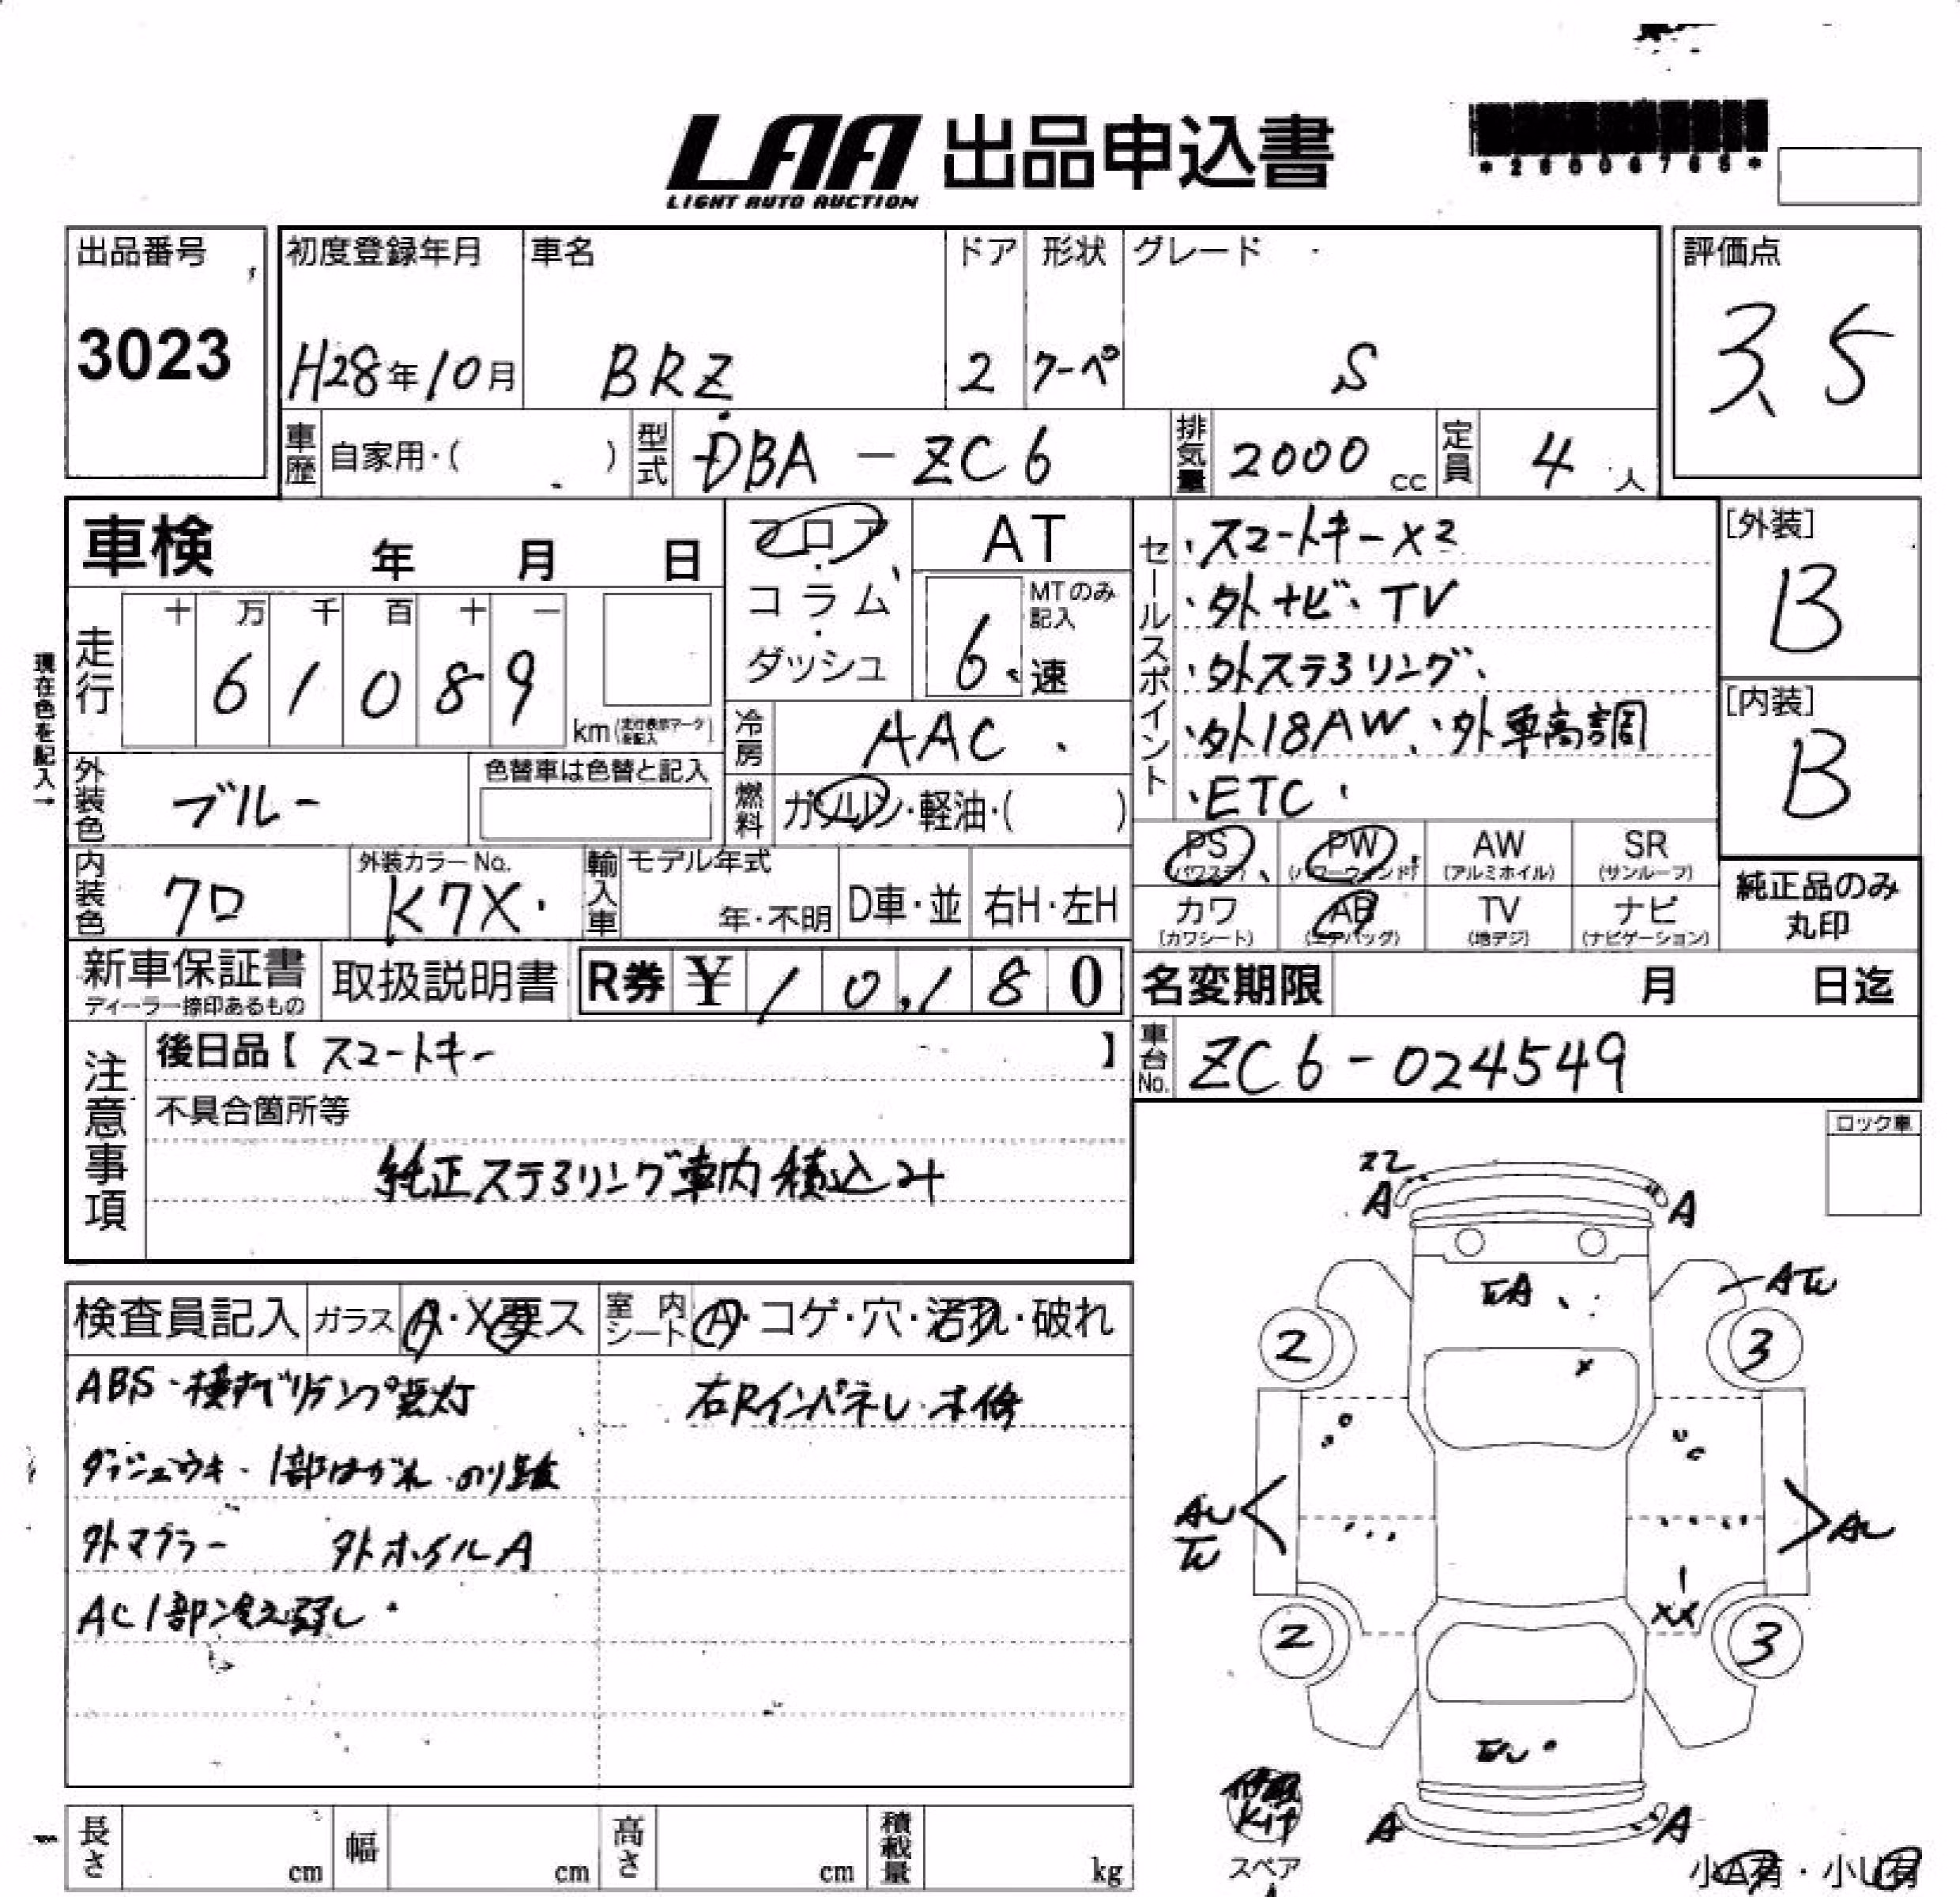 LAA 出品申込書
LIGHT AUTO AUCTION
*26006765*
出品番号
3023
初度登録年月
H28年10月
車名
BRZ
ドア
2
形状
クーペ
グレード
S
評価点
3.5
車歴
自家用・( )
型式
DBA-ZC6
排気量
2000 cc
定員
4 人
車検 年 月 日
フロア・コラム・ダッシュ
AT
MTのみ記入
6 速
セールスポイント
・スマートキー×2
・外ナビ・TV
・外ステアリング
・外18AW ・外車高調
・ETC
[外装]
B
[内装]
B
現在色を記入→
走行
十 万 千 百 十 一
6 1 0 8 9
km (走行表示マークを記入)
冷房
AAC
外装色
ブルー
色替車は色替と記入
燃料
ガソリン・軽油・( )
内装色
クロ
外装カラーNo.
K7X
輸入車
モデル年式
年・不明
D車・並
右H・左H
PS (パワステ)
PW (パワーウィンド)
AW (アルミホイル)
SR (サンルーフ)
カワ (カワシート)
AB (エアバッグ)
TV (地デジ)
ナビ (ナビゲーション)
純正品のみ丸印
新車保証書
ディーラー捺印あるもの
取扱説明書
R券 ¥10,180
名変期限 月 日迄
車台No.
ZC6-024549
注意事項
後日品【スマートキー 】
不具合箇所等
純正ステアリング車内積込み
ロック車
検査員記入
ガラス A・X要ス
室内シート A・コゲ・穴・汚れ・破れ
ABS・横すべりランプ点灯
右Rインパネし
ダッシュウキ・1部はがれ・のり
外マフラー 外ホイルA
AC1部冷え弱し
A
A
2
3
2
3
XX
A
A
スペア
小A有・小U有
長さ cm
幅 cm
高さ cm
積載量 kg